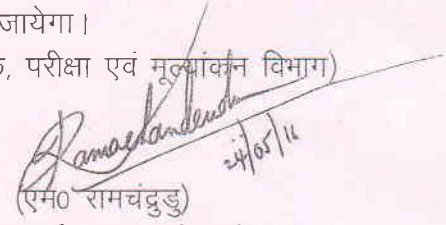 जायेगा।
परीक्षा एवं मूल्यांकन विभाग)
Ramachandrudu
24/05/16
(एम0 रामचंद्रुडु)